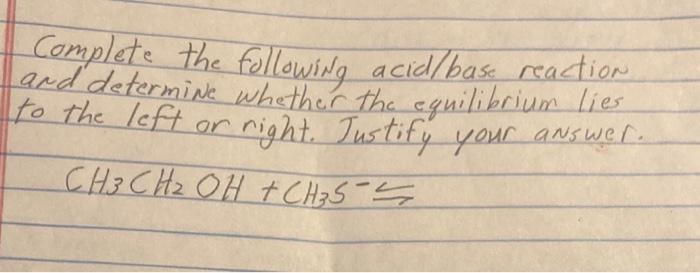 Complete the following acid/base reaction
and determine whether the equilibrium lies
to the left or right. Justify your answer.
CH3 CH2 OH + CH3S⁻ ⇌